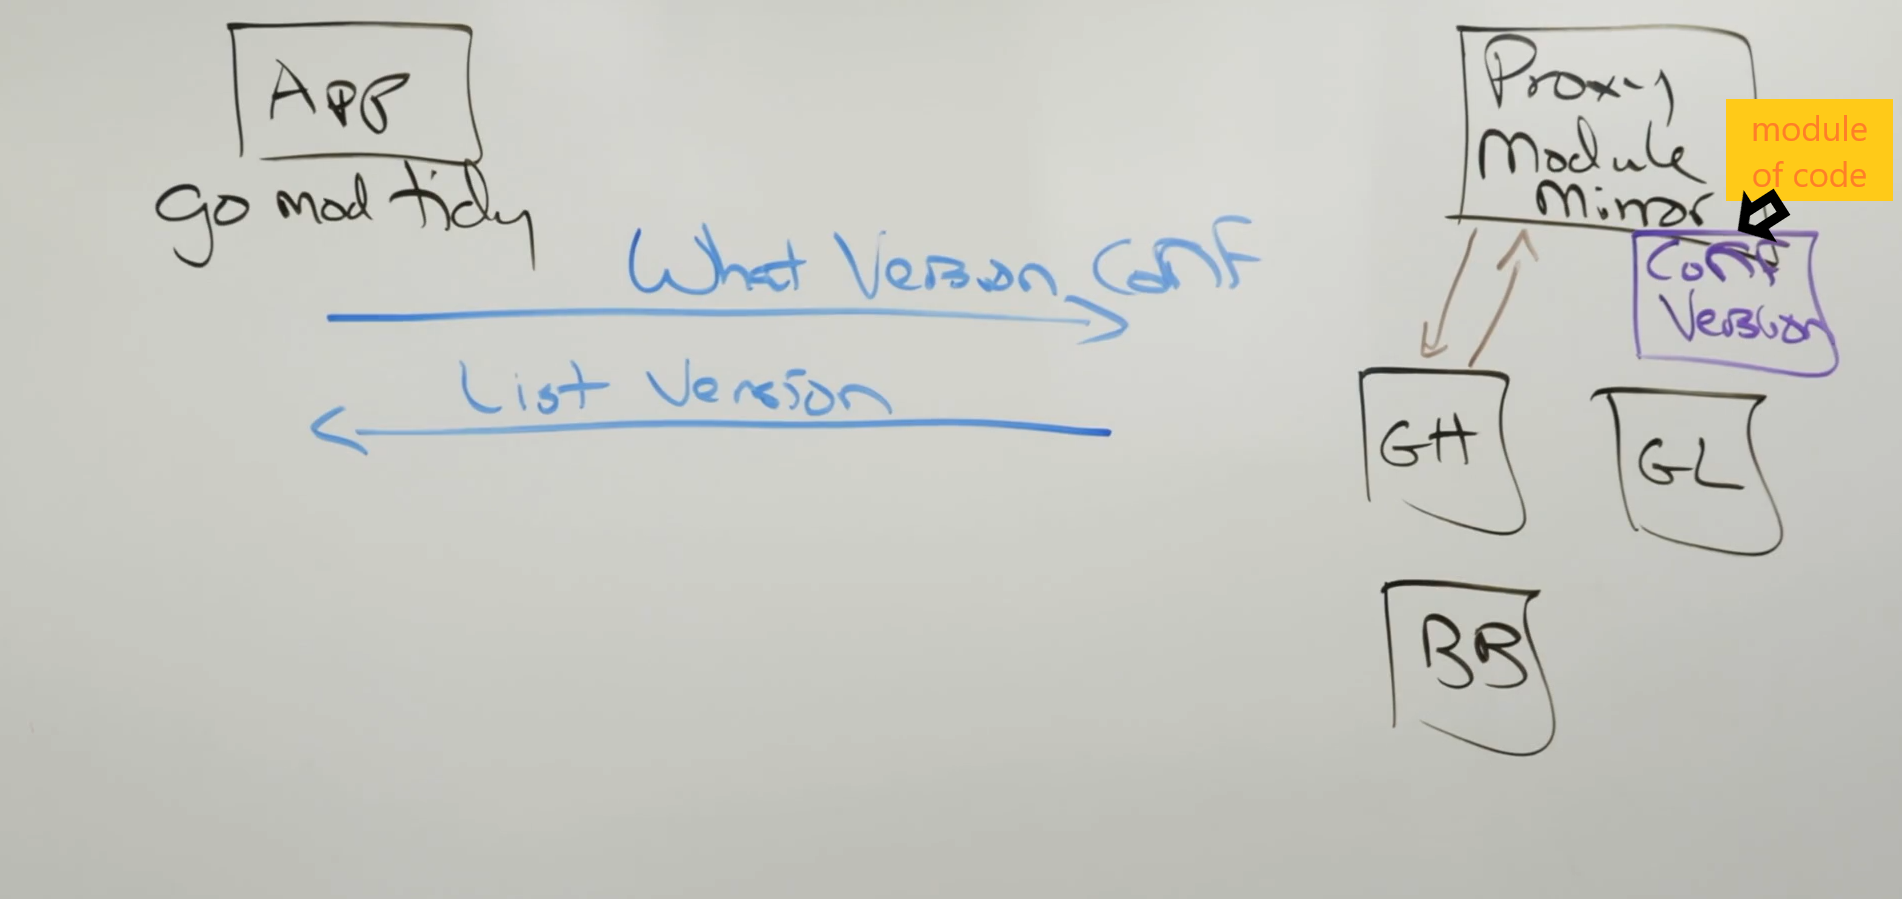 App
go mod tidy
What Version Conf
List Version
Proxy
Module
Mirror
module
of code
Conf
Version
GH
GL
BB